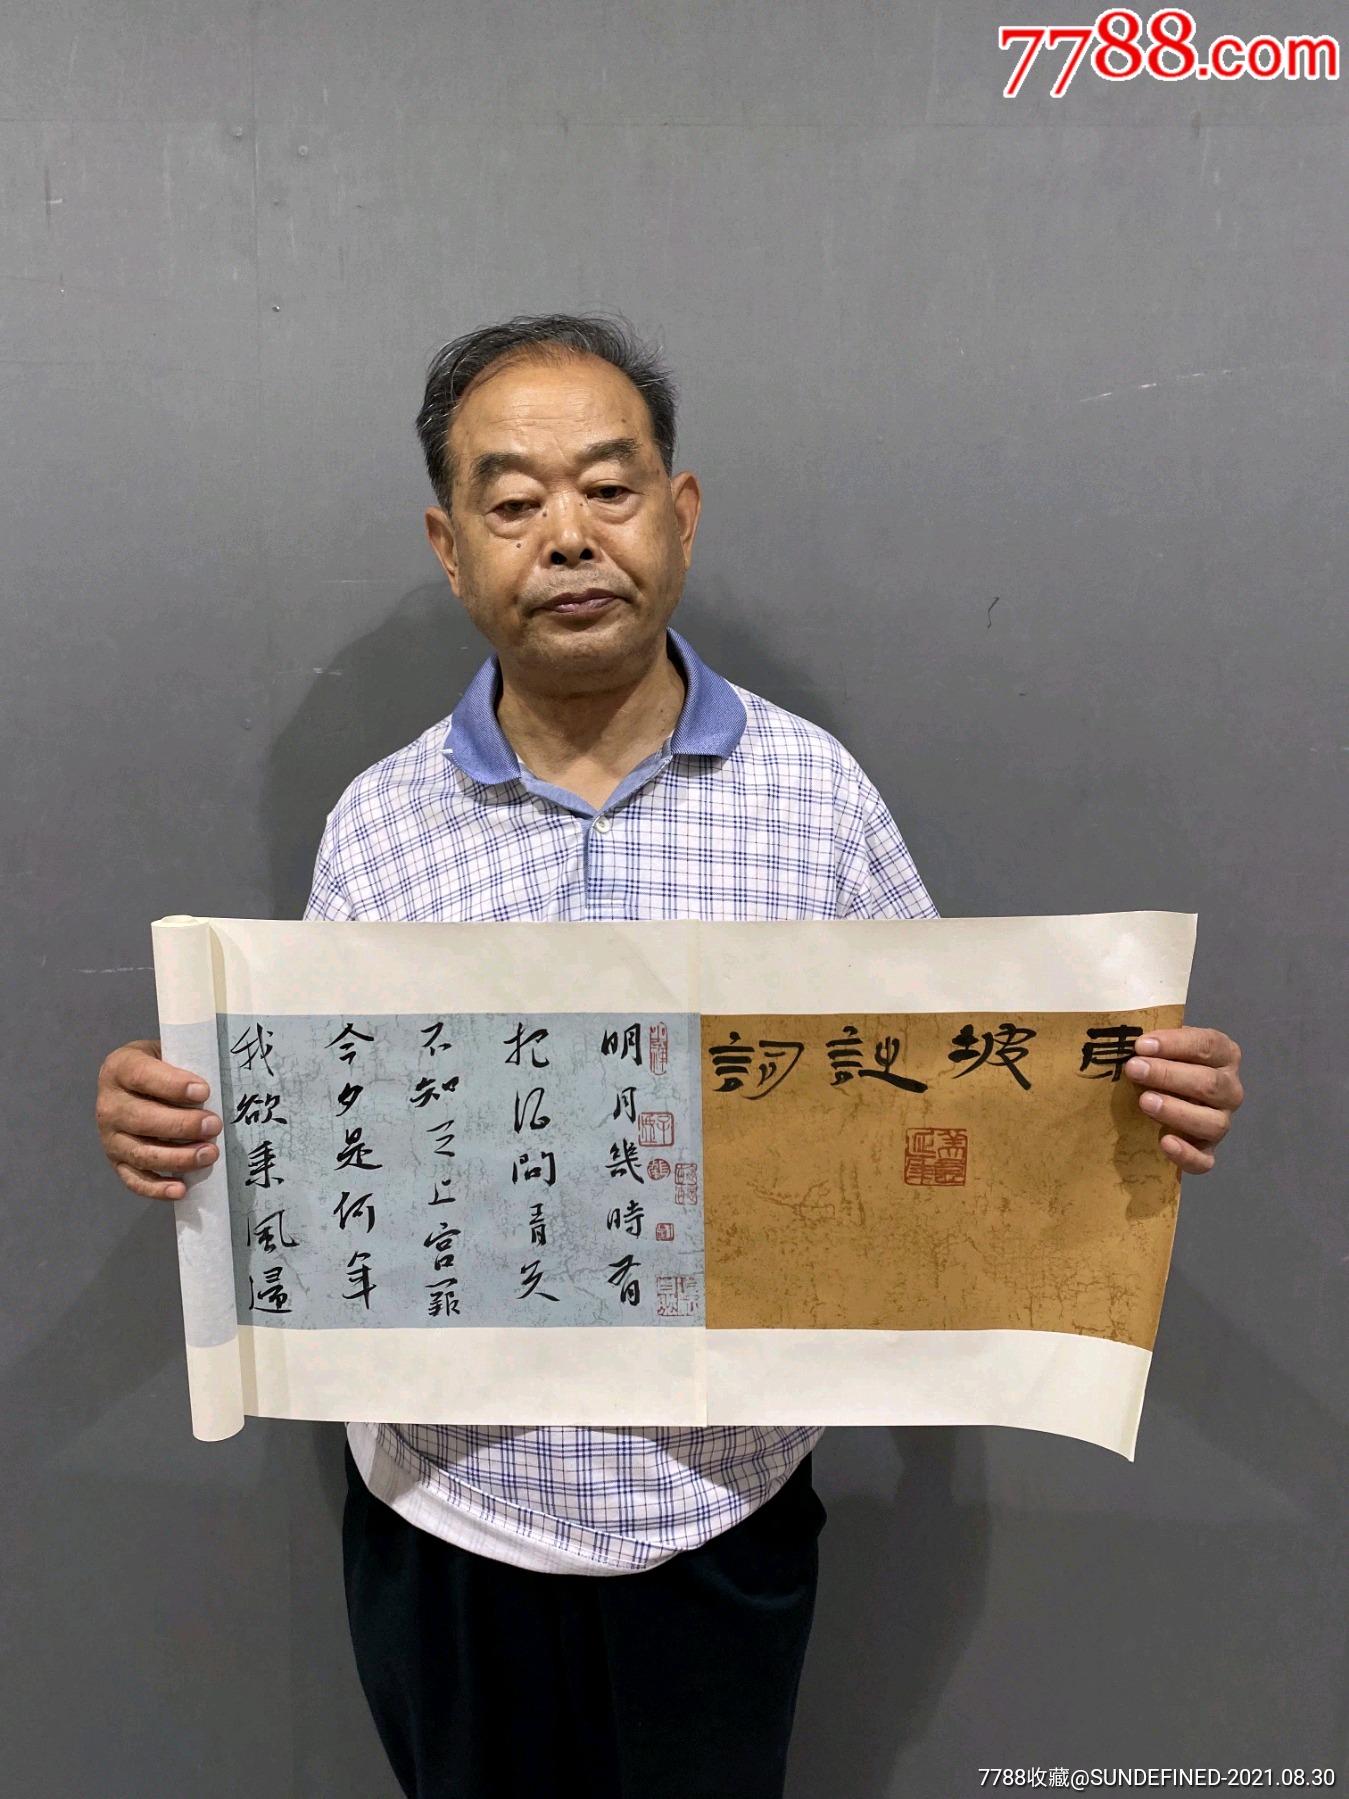 7788.com
東坡詩詞
明月幾時有
把酒問青天
不知天上宮闕
今夕是何年
我欲乘風歸
7788收藏@SUNDEFINED-2021.08.30